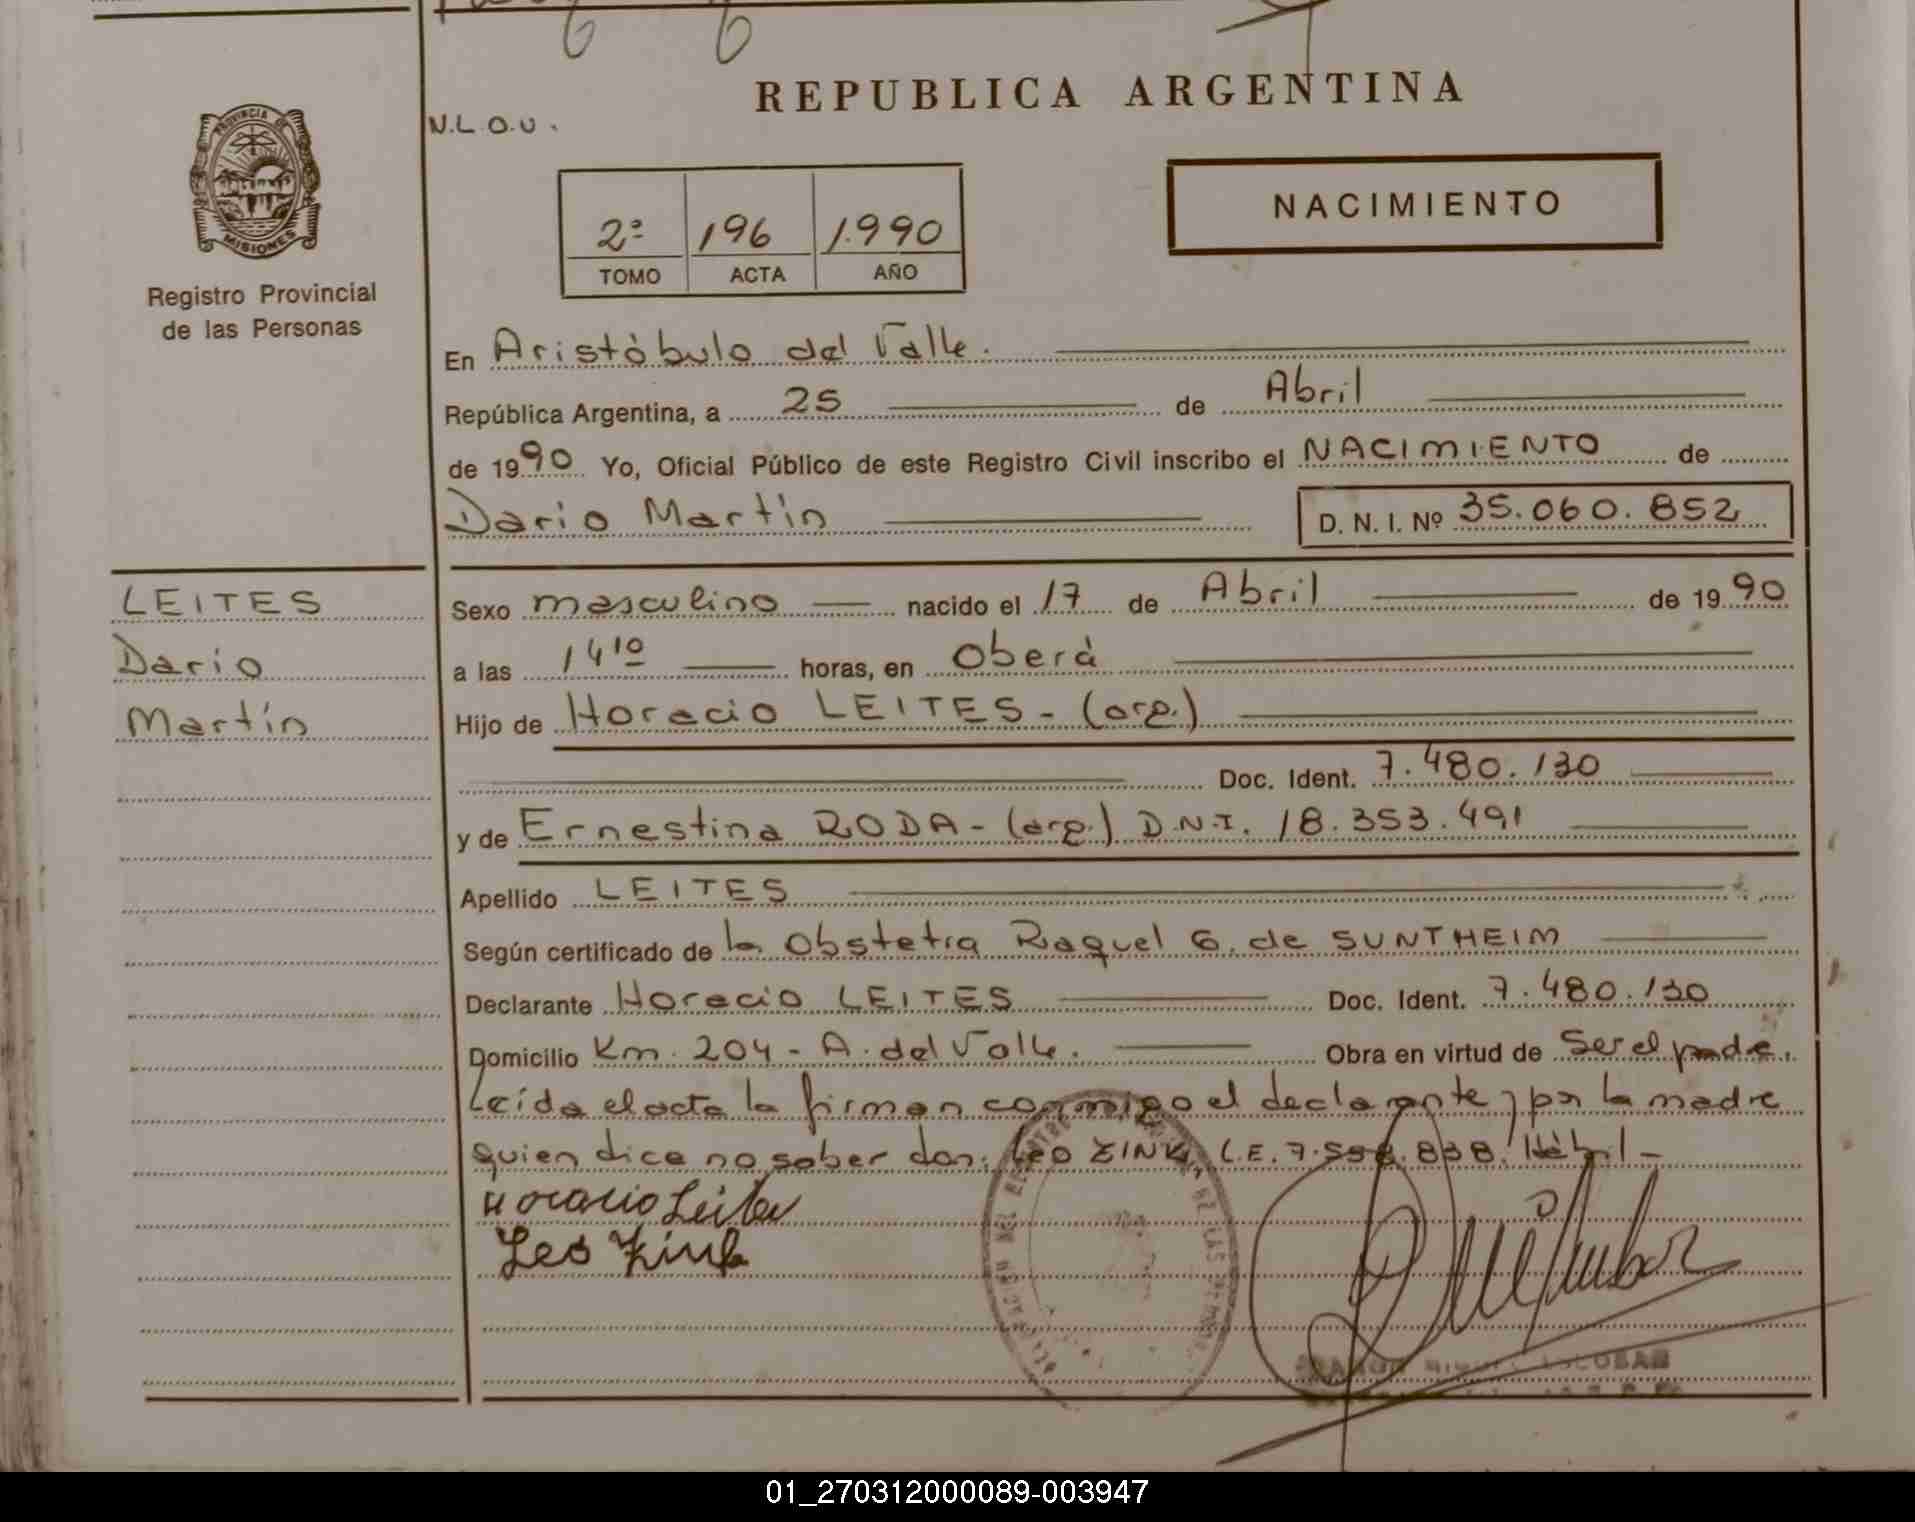 REPUBLICA ARGENTINA
N.L.O.U.
PROVINCIA DE
MISIONES
Registro Provincial
de las Personas
2º 196 1.990
TOMO ACTA AÑO
NACIMIENTO
En Aristóbulo del Valle.
República Argentina, a 25 de Abril
de 1990 Yo, Oficial Público de este Registro Civil inscribo el NACIMIENTO de
Dario Martín D. N. I. Nº 35.060.852
LEITES
Dario
Martín
Sexo masculino nacido el 17 de Abril de 1990
a las 14 10 horas, en Oberá
Hijo de Horacio LEITES - (arg.)
Doc. Ident. 7.480.130
y de Ernestina RODA - (arg.) D.N.I. 18.353.491
Apellido LEITES
Según certificado de la Obstetra Raquel G. de SUNTHEIM
Declarante Horacio LEITES Doc. Ident. 7.480.130
Domicilio Km. 204 - A. del Valle. Obra en virtud de Ser el padre.
Leída el acta la firman conmigo el declarante y por la madre
quien dice no saber don: Leo ZINK, L.E. Hábil -
Horacio Leites
Leo Zink
ESCOBAR
01_270312000089-003947